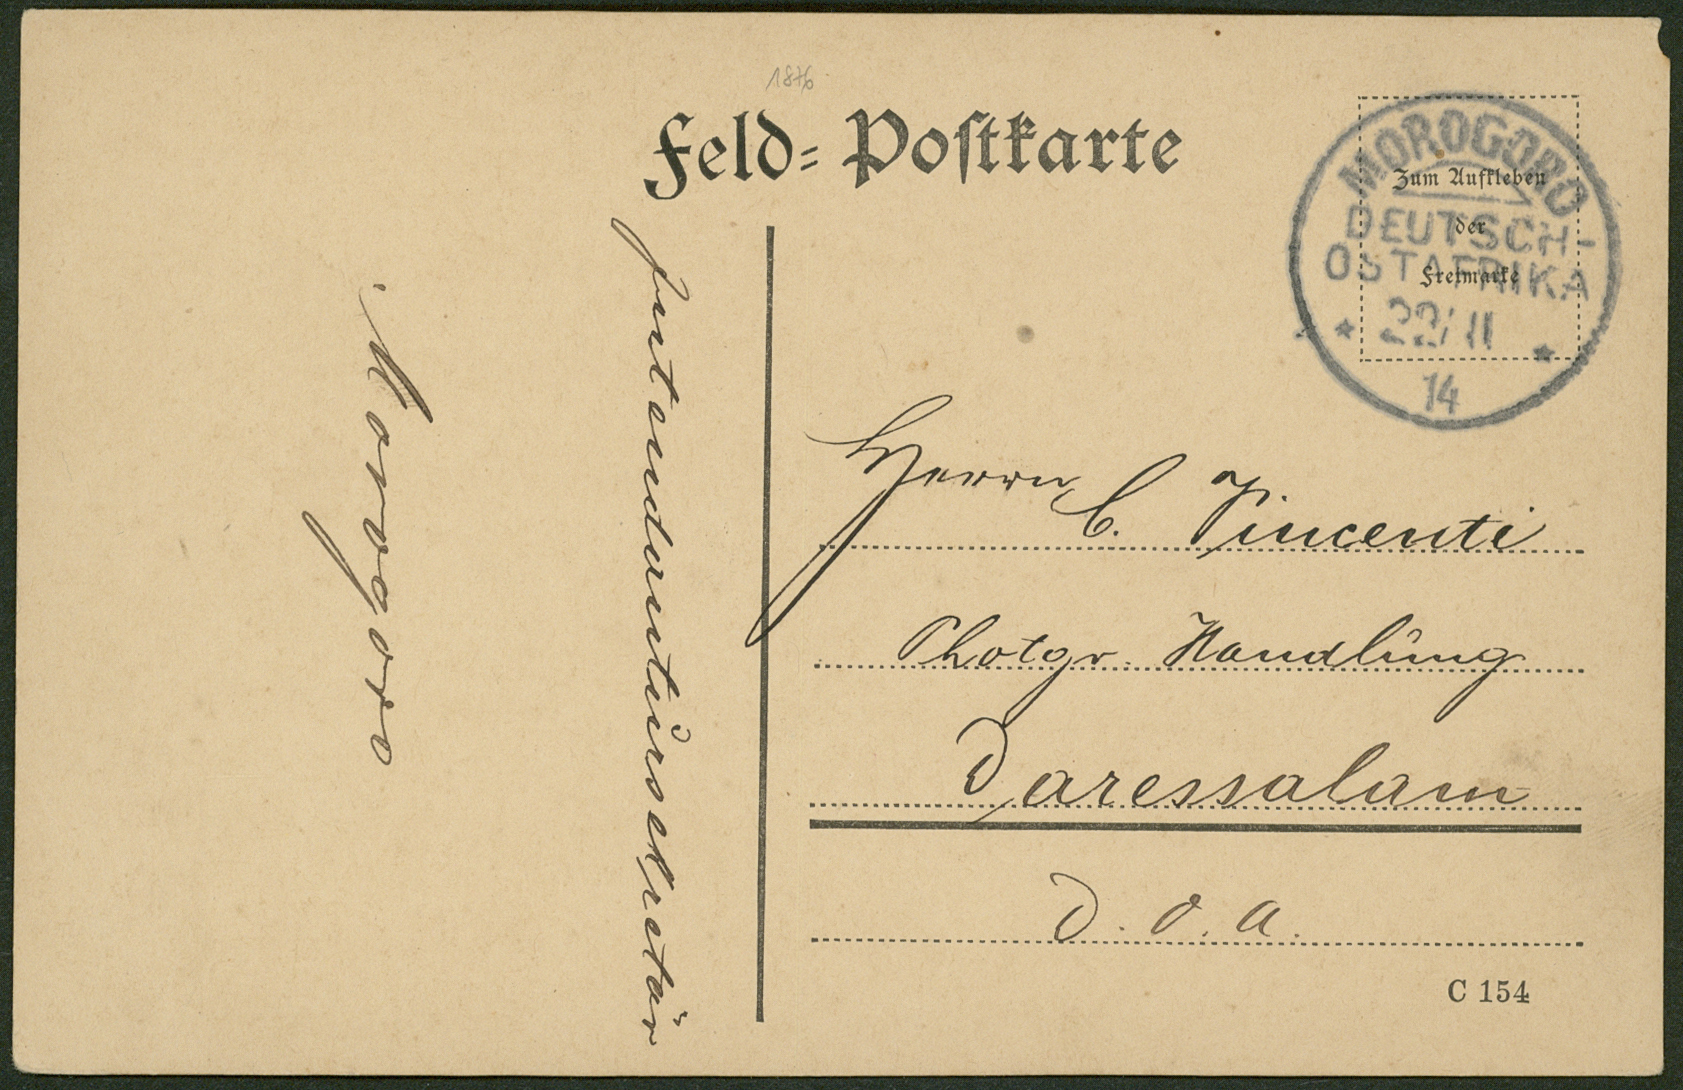 1876
Feld=Postkarte
MOROGORO
DEUTSCH-
OSTAFRIKA
22/11
14
Zum Aufkleben
der
Freimarke
Herrn C. Vincenti
Photgr. Handlung
Daressalam
D. O. A.
C 154
Intendantursekretär
Morogoro